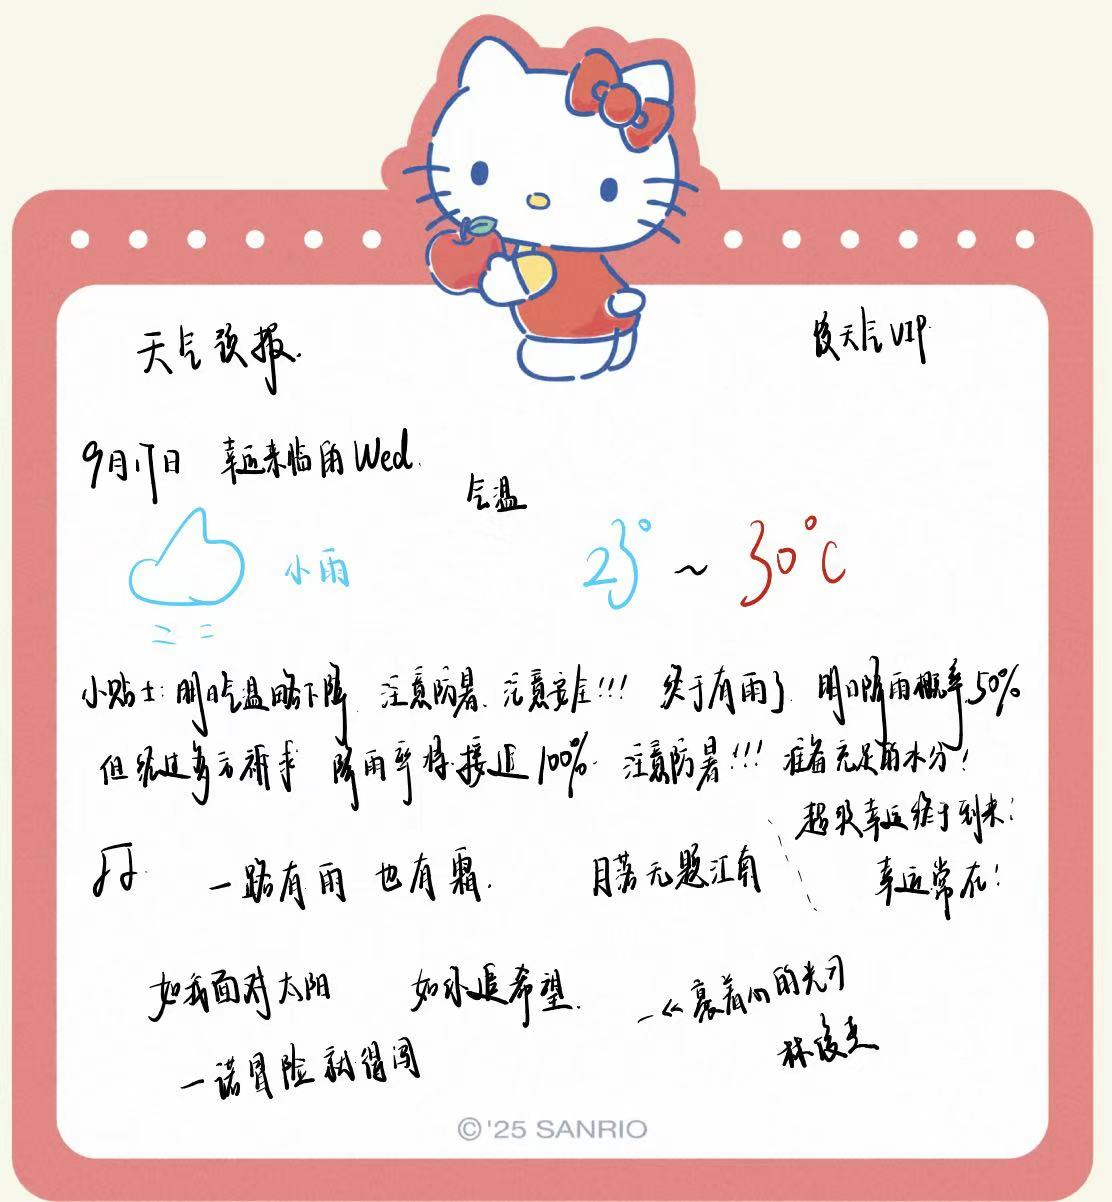 天气预报.
俊天气VIP
9月17日 幸运来临的Wed.
气温
小雨
23° ~ 30°C
小贴士:明日气温略下降 注意防暑、注意安全!!! 终于有雨了 明日降雨概率50%
但经过多方祈求 降雨率将接近100% 注意防暑!!! 准备充足的水分!
超级幸运终于到来!
幸运常在!
一路有雨 也有霜.
月落无题江南
如我面对太阳
如你追希望.
一诺冒险就得闯
—《裹着心的光》
林俊杰
©'25 SANRIO